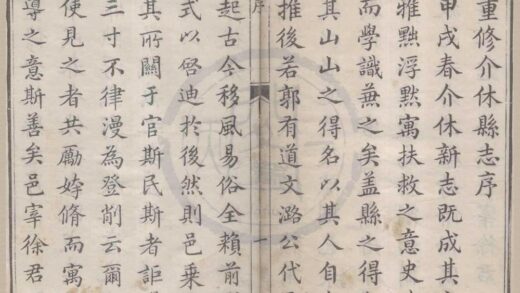 重修介休縣志序
甲戌春介休新志既成其
雅黜浮默寓扶救之意史
而學識蕪之矣蓋縣之得
其山山之得名以其人自
推後若郭有道文潞公代
序
一
起古今移風易俗全賴前
式以啓迪於後然則邑乗
其所關于官斯民斯者詎
三寸不律漫為登削云爾
使見之者共勵姱脩而寓
導之意斯善矣邑宰徐君